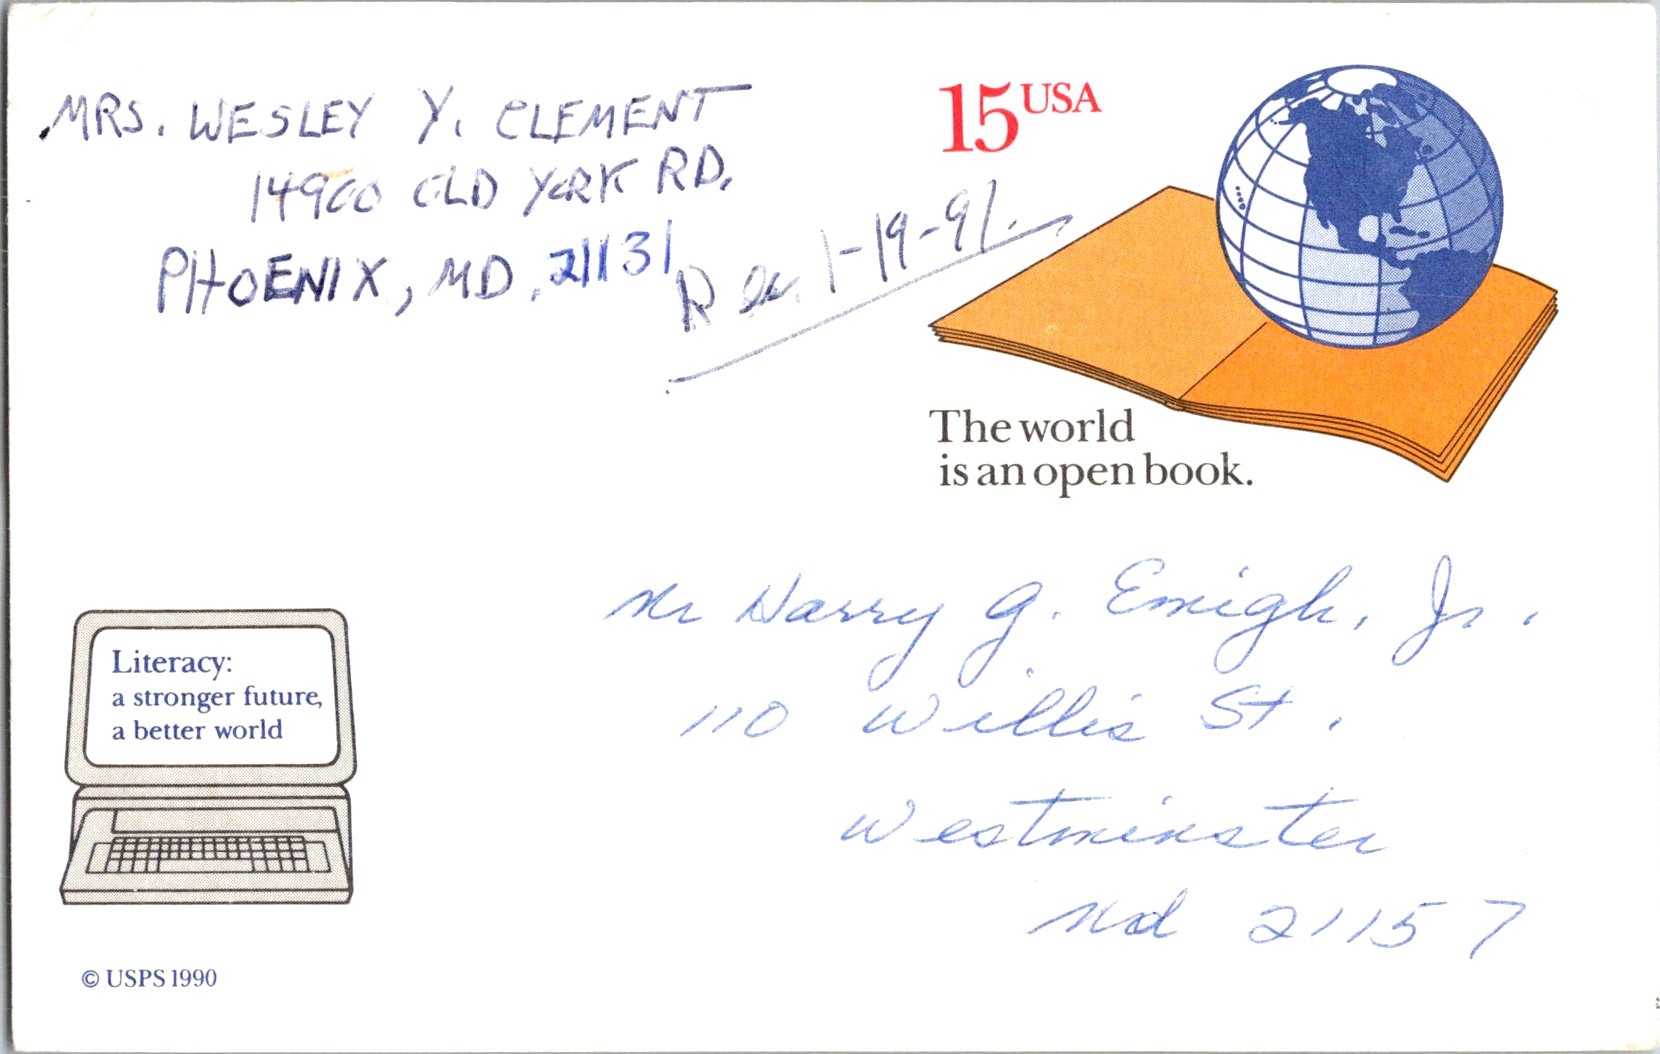 MRS. WESLEY Y. CLEMENT
14900 OLD YORK RD.
PHOENIX, MD. 21131
Rec. 1-19-91.
15 USA
The world
is an open book.
Mr Harry G. Emigh, Jr.
110 Willis St.
Westminster
Md 21157
Literacy:
a stronger future,
a better world
© USPS 1990